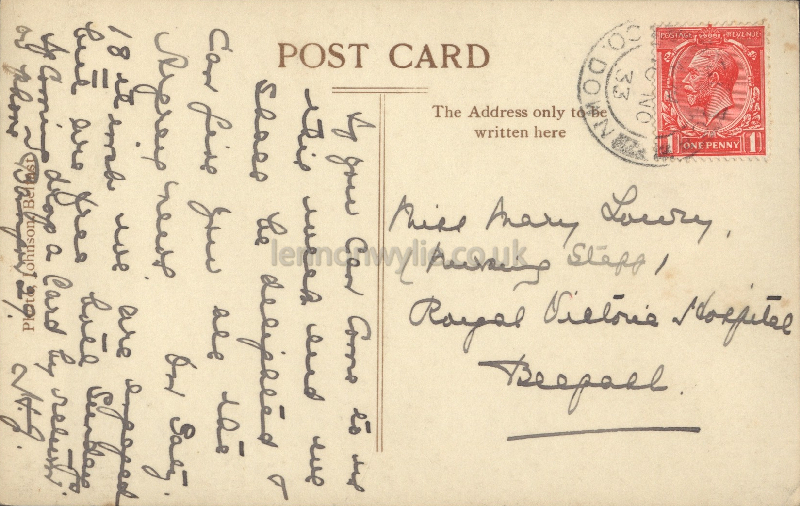 POST CARD
The Address only to be
written here
CO. DOWN
NO
33
POSTAGE REVENUE
ONE PENNY
Miss Mary Lowry,
Nursing Staff,
Royal Victoria Hospital
Belfast.
If you can come to us
this week end we
shall be delighted &
can give you all the
news. On Saty.
18th inst we are engaged
but are free till Sunday
if coming drop a card by return
or phone Bangor
Photo, Johnson, Belfast
lennonwylie.co.uk